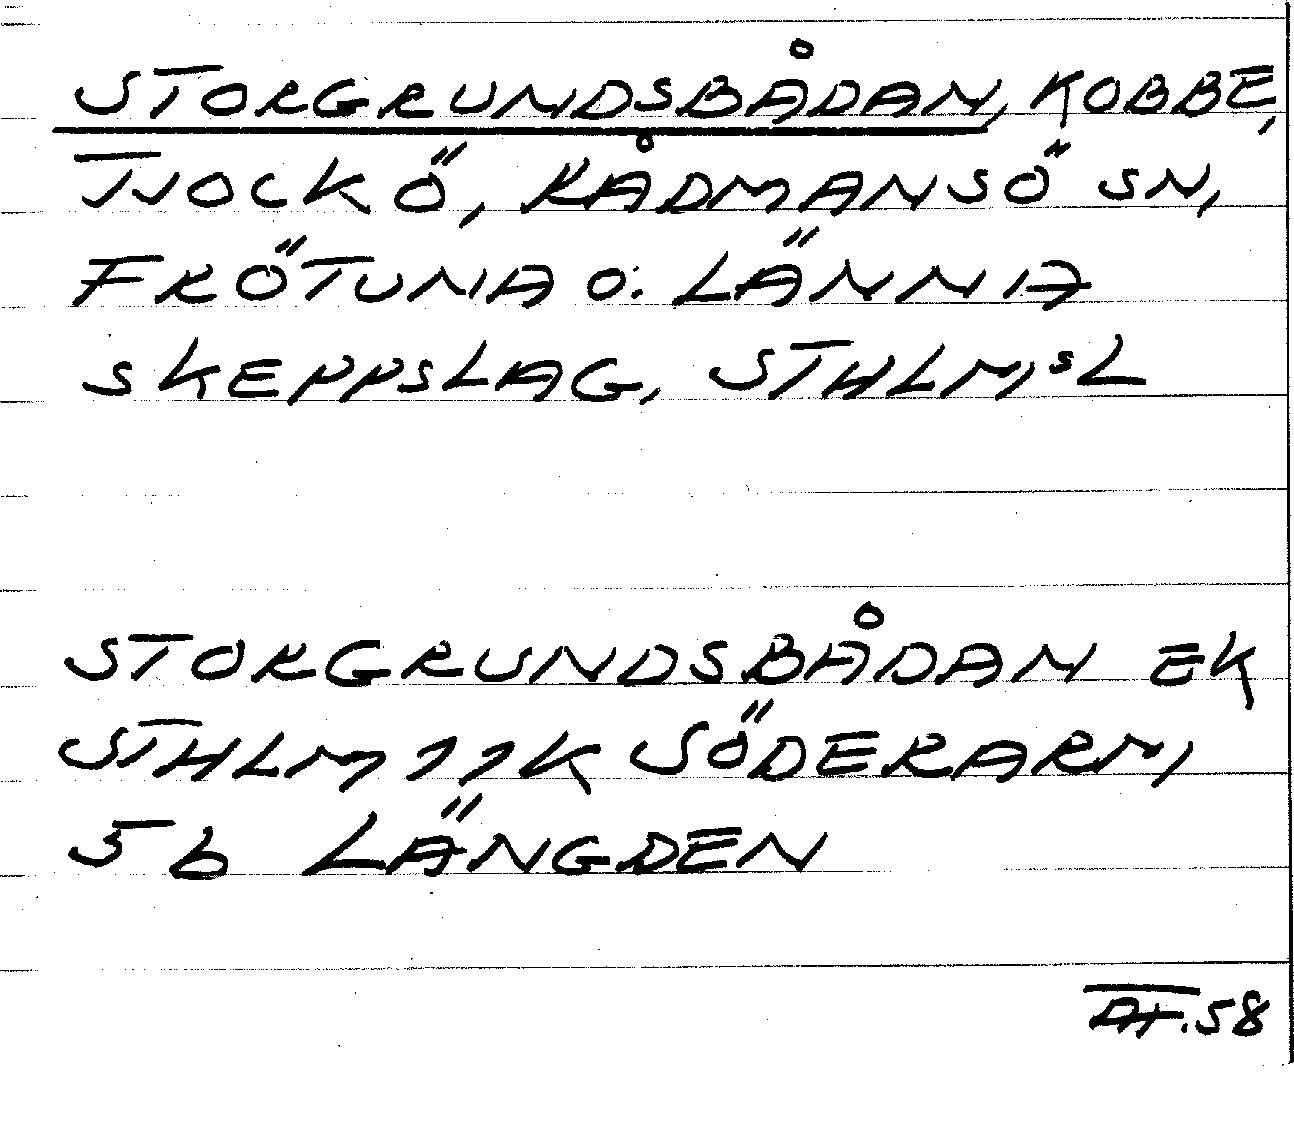 STORGRUNDSBÅDAN, KOBBE,
TJOCKÖ, RÅDMANSÖ SN,
FRÖTUNA O. LÄNNA
SKEPPSLAG, STHLMSL
STORGRUNDSBÅDAN EK
STHLM 11K SÖDERARM,
5b LÄNGDEN
58